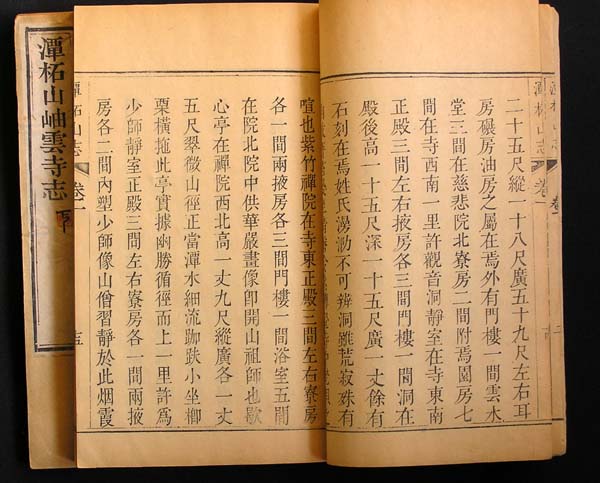 二十五尺縱一十八尺廣五十九尺左右耳
房碾房油房之屬在焉外有門樓一間雲水
堂三間在慈悲院北寮房二間附焉園房七
間在寺西南一里許觀音洞靜室在寺東南
正殿三間左右掖房各三間門樓一間洞在
殿後高一十五尺深一十五尺廣一丈餘有
石刻在焉姓氏漫泐不可辨洞雖荒寂殊有
喧也紫竹禪院在寺東正殿三間左右寮房
各一間兩掖房各三間門樓一間浴室五間
在院北院中供華嚴畫像卽開山祖師也歇
心亭在禪院西北高一丈九尺縱廣各一丈
五尺翠微山徑正當潭水細流跏趺小坐楖
栗橫拖此亭實據幽勝循徑而上一里許爲
少師靜室正殿三間左右寮房各一間兩掖
房各二間內塑少師像山僧習靜於此烟霞
潭柘山志
卷一
潭柘山岫雲寺志